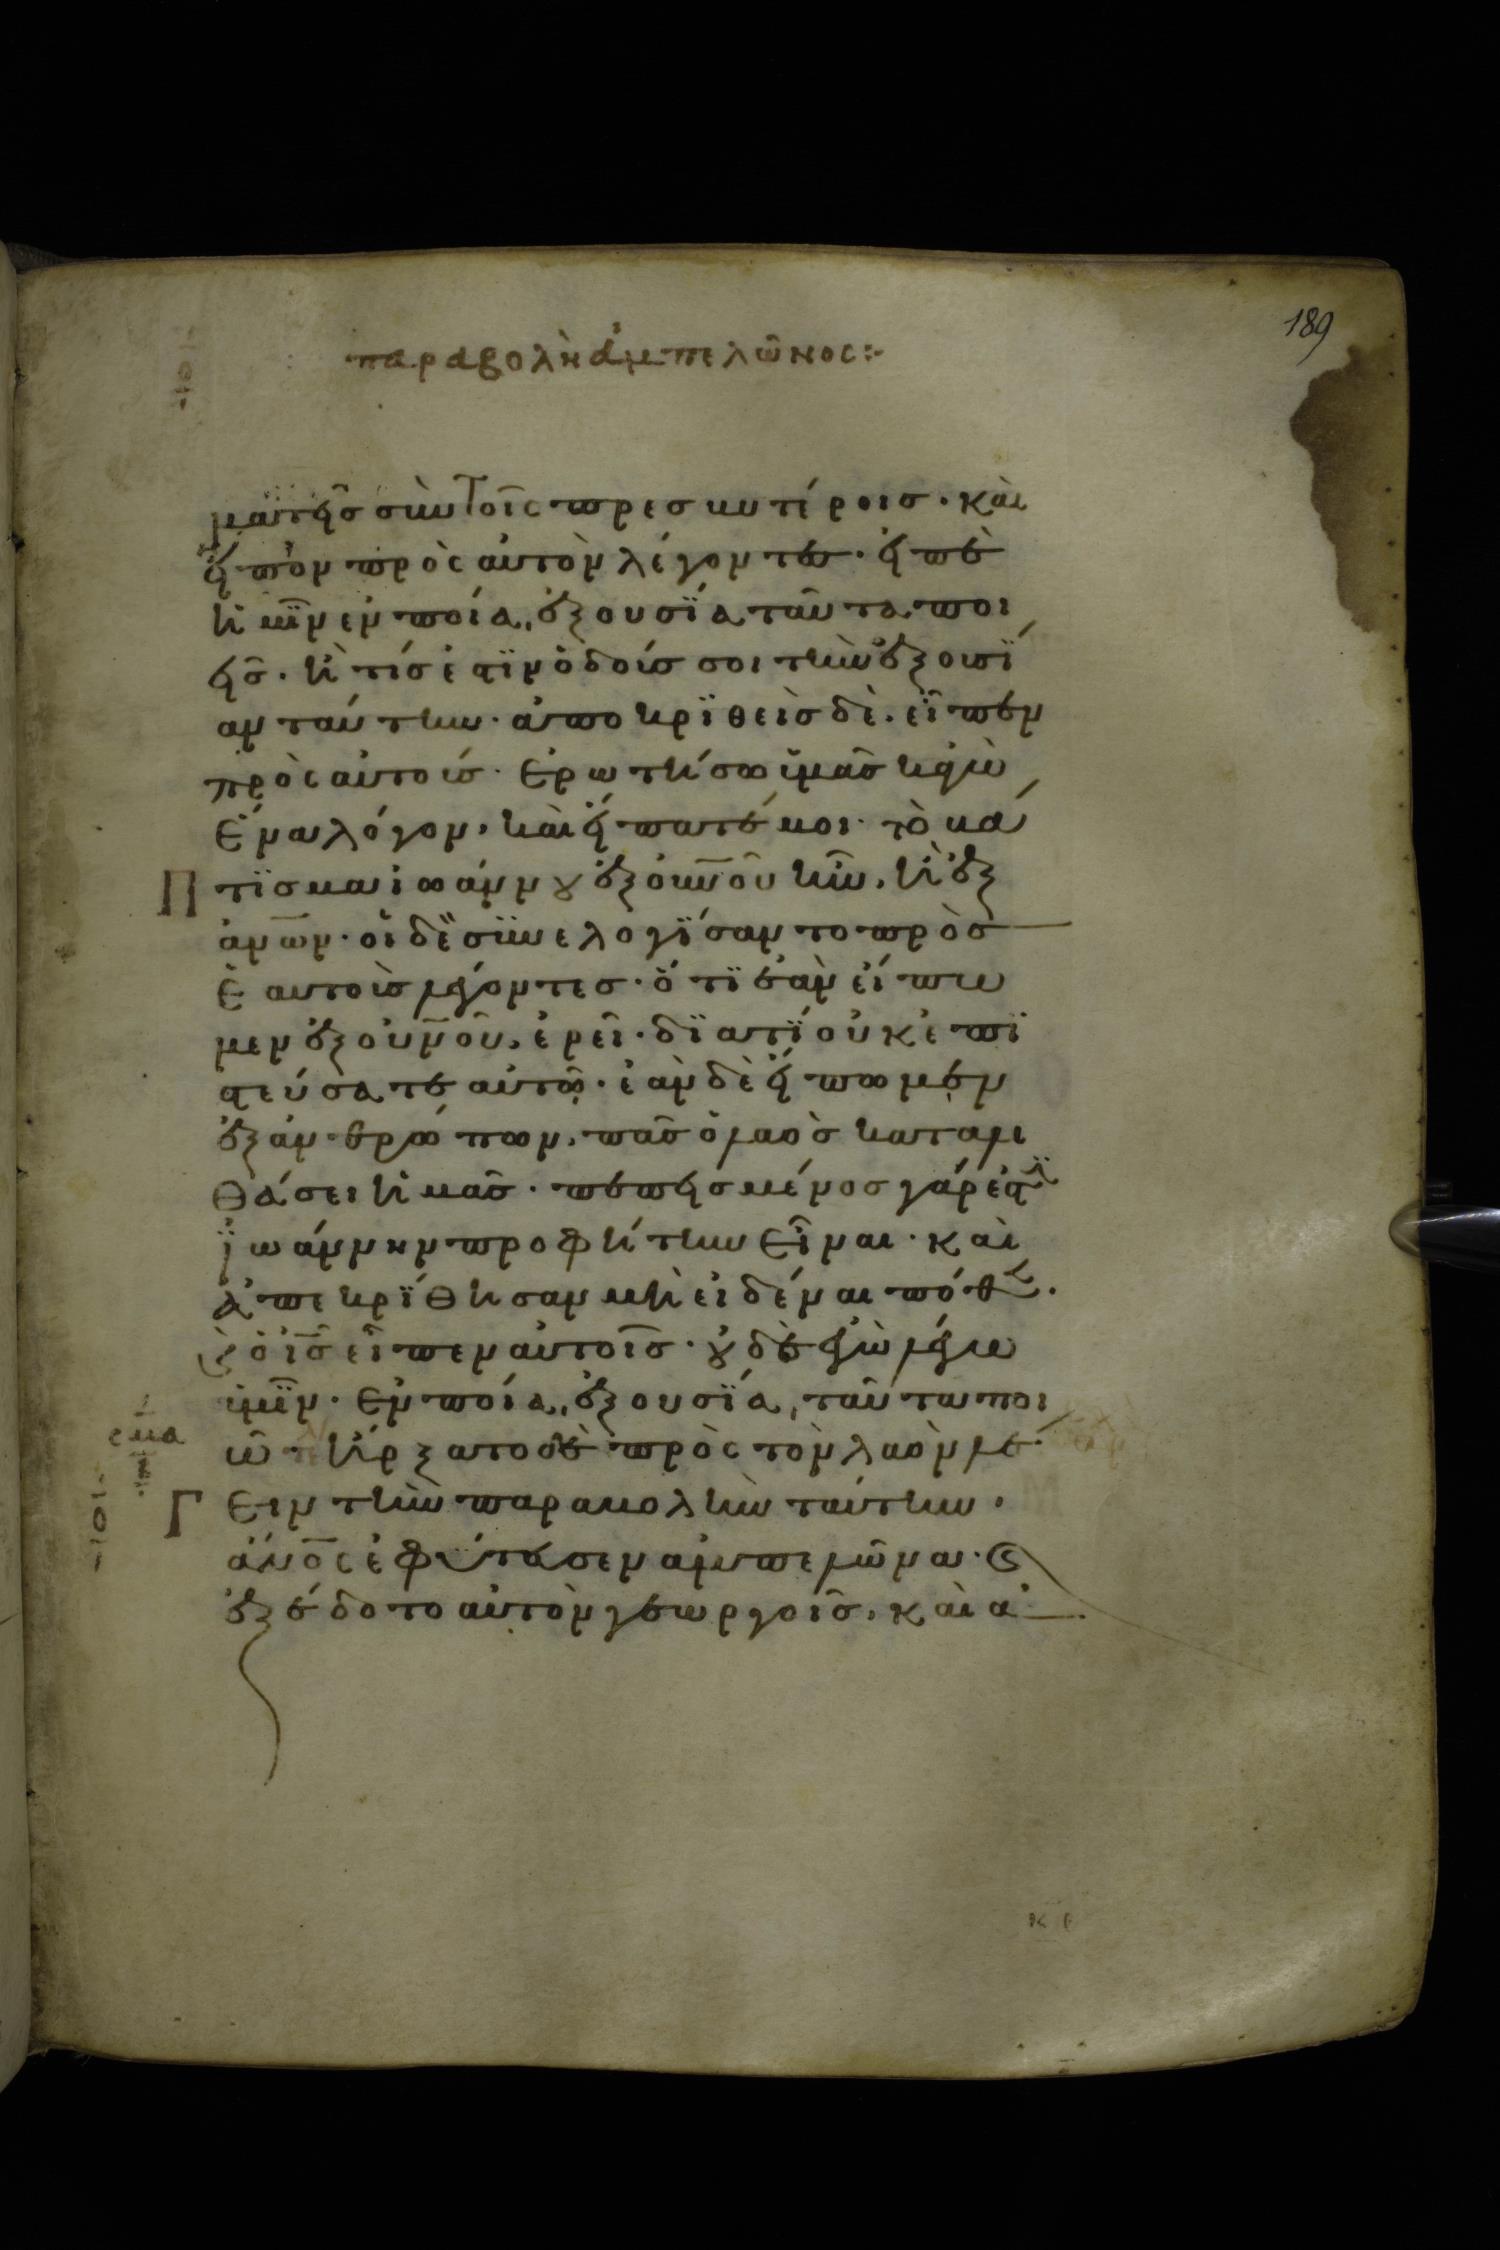 189
παραβολὴ ἀμπελῶνος:-
ματεῖσ σὺν τοῖς πρεσβυτέροισ· καὶ
εἶπον πρὸς αὐτὸν λέγοντες· εἰπὲ
ἡμῖν ἐν ποία ἐξουσία ταῦτα ποι
εῖσ· ἢ τίσ ἐστιν ὁ δούσ σοι τὴν ἐξουσί
αν ταύτην· ἀποκριθεὶσ δὲ εἶπεν
πρὸς αὐτούσ· ἐρωτήσω ὑμᾶσ κἀγὼ
ἕνα λόγον, καὶ εἴπατέ μοι· τὸ βά
πτισμα ἰωάννου ἐξ οὐνοῦ ἦν, ἢ ἐξ
ἀνων· οἱ δὲ συνελογίσαντο πρὸσ
ἑαυτοὺσ λέγοντεσ· ὅτι ἐὰν εἴπω
μεν ἐξ οὐνοῦ, ἐρεῖ· διατί οὐκ ἐπι
στεύσατε αὐτῶ· ἐὰν δὲ εἴπωμεν
ἐξ ἀνθρώπων, πᾶσ ὁ λαὸσ καταλι
θάσει ἡμᾶσ· πεπεισμένοσ γάρ ἐστιν
ἰωάννην προφήτην εἶναι· καὶ
ἀπεκρίθησαν μὴ εἰδέναι πόθεν·
καὶ ὁ ισ εἶπεν αὐτοῖσ· οὐδὲ ἐγὼ λέγω
ὑμῖν· ἐν ποία ἐξουσία ταῦτα ποι
ῶ· ἤρξατο δὲ πρὸς τὸν λαὸν λέ
Γ γειν τὴν παραβολὴν ταύτην·
ἄνος ἐφύτευσεν ἀμπελῶνα· καὶ
ἐξέδοτο αὐτὸν γεωργοῖσ, καὶ ἀ